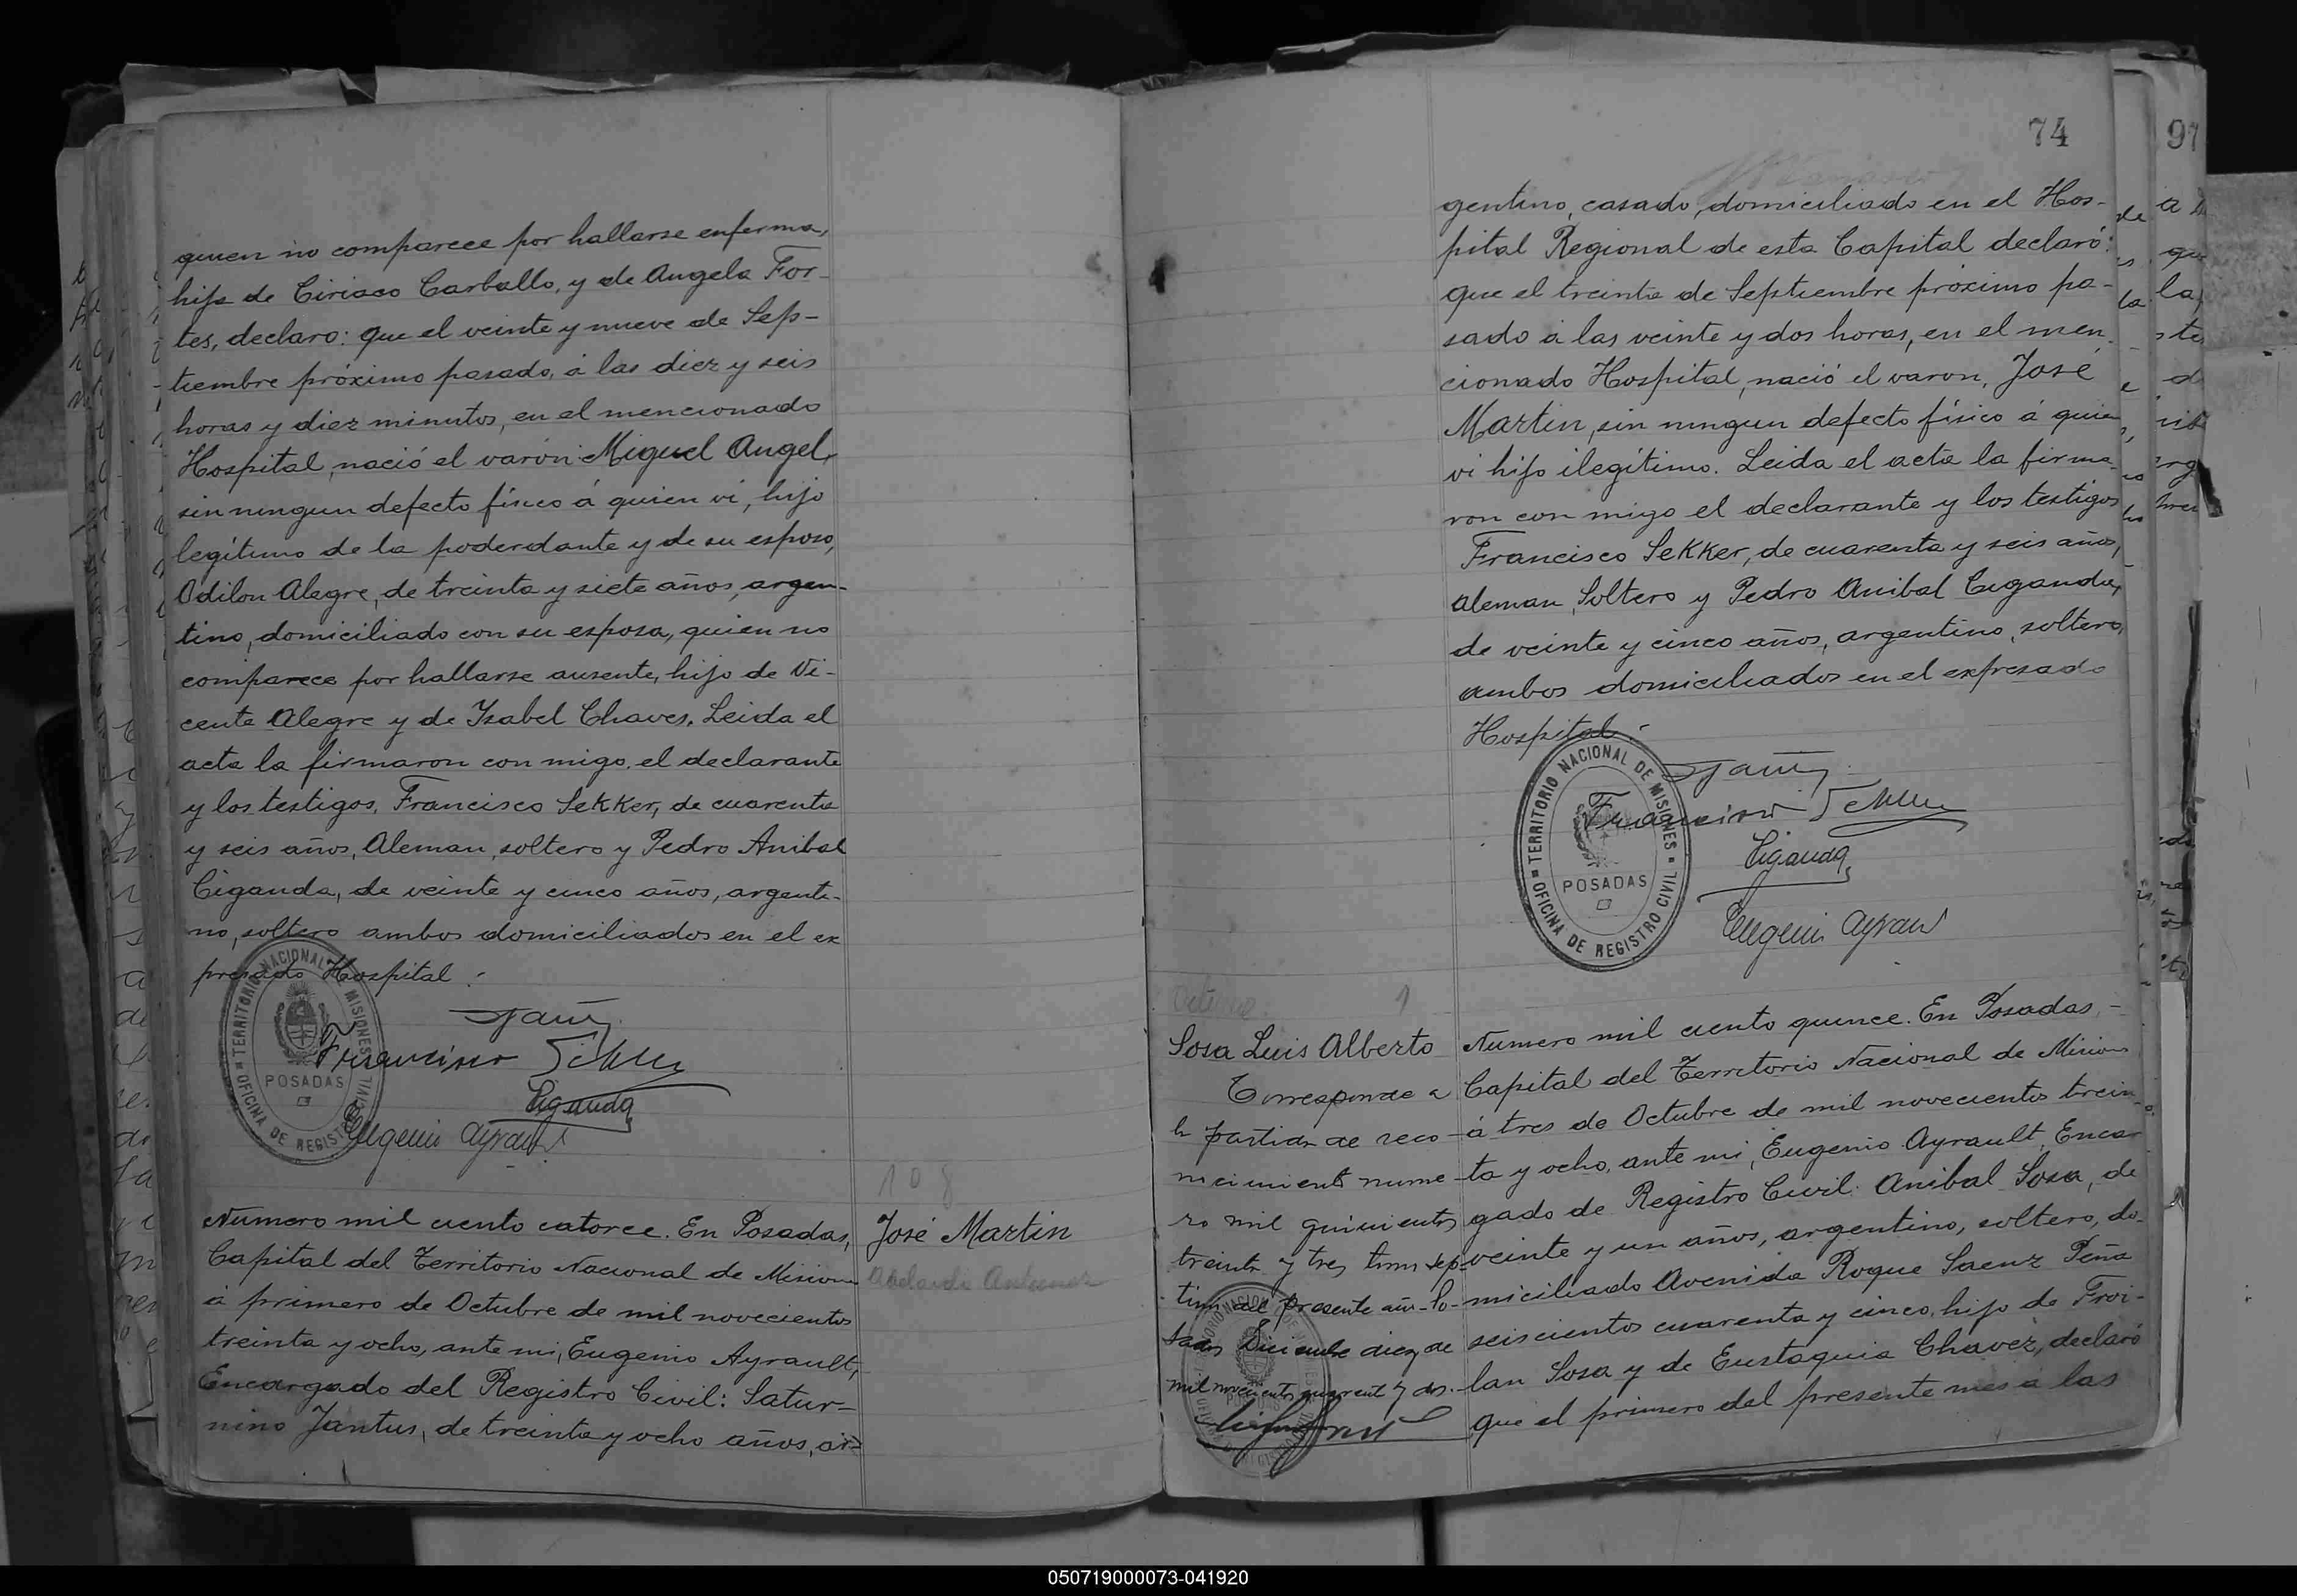 quien no comparece por hallarse enferma,
hija de Ciriaco Carballo, y de Angela For-
tes, declaro: que el veinte y nueve de Sep-
tiembre próximo pasado, á las diez y seis
horas y diez minutos, en el mencionado
Hospital, nació el varón: Miguel Angel,
sin ningun defecto físico á quien ví, hijo
legítimo de la poderdante y de su esposo,
Odilon Alegre, de treinta y siete años, argen-
tino, domiciliado con su esposa, quien no
comparece por hallarse ausente, hijo de Vi-
cente Alegre y de Isabel Chaves. Leida el
acta la firmaron con migo el declarante
y los testigos, Francisco Sekker, de cuarenta
y seis años, Aleman, soltero y Pedro Anibal
Ciganda, de veinte y cinco años, argenti-
no, soltero ambos domiciliados en el ex
presado Hospital.
TERRITORIO NACIONAL DE MISIONES
POSADAS
OFICINA DE REGISTRO CIVIL
Francisco
Ciganda
Eugenio Ayrault
108
Numero mil ciento catorce. En Posadas,
José Martin
Capital del Territorio Nacional de Misiones
á primero de Octubre de mil novecientos
treinta y ocho, ante mi, Eugenio Ayrault,
Encargado del Registro Civil: Satur-
nino Jantus, de treinta y ocho años, ar-
74
gentino, casado, domiciliado en el Hos-
pital Regional de esta Capital declaró:
que el treinta de Septiembre próximo pa-
sado á las veinte y dos horas, en el men
cionado Hospital, nació el varon, José
Martin, sin ningun defecto físico á quien
vi hijo ilegítimo. Leida el acta la firma-
ron con migo el declarante y los testigos
Francisco Sekker, de cuarenta y seis años,
aleman, soltero y Pedro Anibal Ciganda,
de veinte y cinco años, argentino, soltero,
ambos domiciliados en el expresado
Hospital.
TERRITORIO NACIONAL DE MISIONES
POSADAS
OFICINA DE REGISTRO CIVIL
Francisco
Ciganda
Eugenio Ayrault
1
Sosa Luis Alberto
Corresponde a
la partida de reco-
nocimiento nume-
ro mil quinientos
treinta y tres tomo sep-
timo del presente año-Po-
sadas Diciembre diez de
mil novecientos cuarenta y dos.
Numero mil ciento quince. En Posadas,-
Capital del Territorio Nacional de Misiones
á tres de Octubre de mil novecientos trein-
ta y ocho, ante mi, Eugenio Ayrault, Encar
gado de Registro Civil: Anibal Sosa, de
veinte y un años, argentino, soltero, do-
miciliado Avenida Roque Saenz Peña
seiscientos cuarenta y cinco, hijo de Froi-
lan Sosa y de Eustaquia Chavez, declaró
que el primero del presente mes á las
97
050719000073-041920